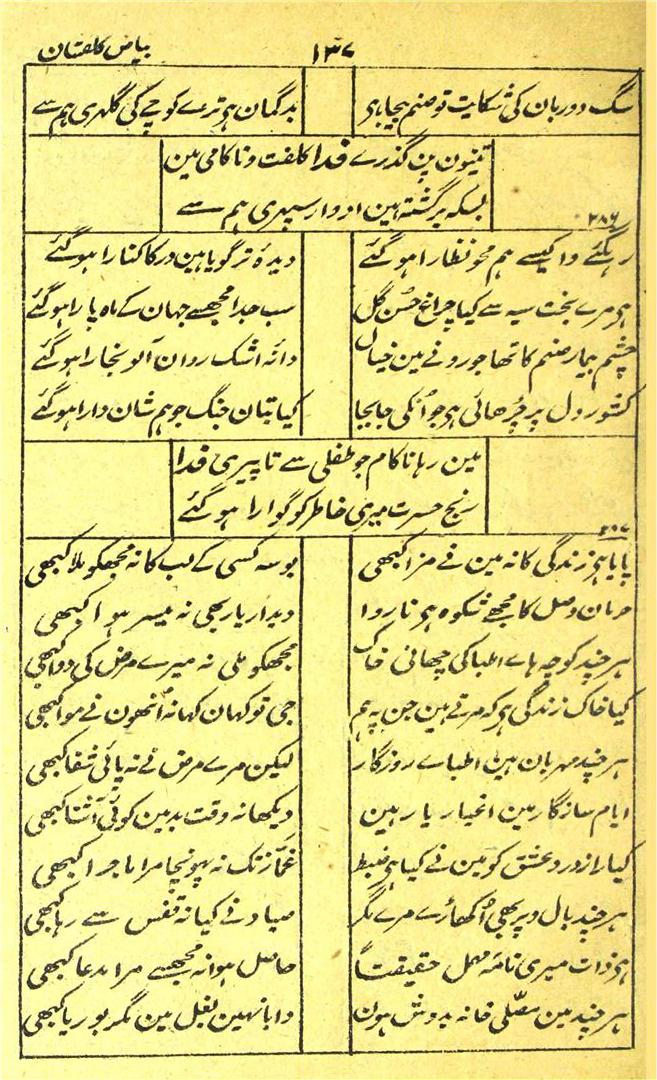 ۱۳۷ بیاض کلفتان
سگ دوربان کی شکایت تو صنم بیجا ہی بدگمان ہی ترے کوچے کی گلہری ہم سے
تینون پن گذرے فدا کلفت و ناکامی مین
بسکہ برگشتہ ہین ادوار سپہری ہم سے
۲۸۶
رہگئے وا کیسے ہم محو نظارا ہوگئے دیدۂ تر گویا ہین در کا کنارا ہوگئے
ہی مرے بخت سیہ سے کیا چراغ حسن گل سب جدا مجھسے جہان کے ماہ پارا ہوگئے
چشم بیمار صنم کا تھا جو رونے مین خیال دانہ اشک روان آلو بخارا ہوگئے
کشور دل پر چڑھائی ہی جو انکی جابجا کیا بتان جنگ جو ہم شان دارا ہوگئے
مین رہا ناکام جو طفلی سے تا پیری فدا
رنج حسرت میری خاطر کو گوارا ہوگئے
۲۸۷
پایا ہی زندگی کا نہ مین نے مزا کبھی بوسہ کسی کے لب کا نہ مجھکو ملا کبھی
حرمان وصل کا مجھے شکوہ ہی ناروا دیدار یار بھی نہ میسر ہوا کبھی
ہرچند کوچہ ہاے اطبا کی چھانی خاک مجھکو ملی نہ میرے مرض کی دوا کبھی
کیا خاک زندگی ہی کہ مرتے ہین جن پہ ہم جی تو کہان کہا نہ انھون نے موا کبھی
ہرچند مہربان ہین اطباے روزگار لیکن مرے مرض نے نہ پائی شفا کبھی
ایام سازگار مین اغیار یار ہین دیکھا نہ وقت بد مین کوئی آشنا کبھی
کیا راز درد عشق کو مین نے کیا ہی ضبط غماز تک نہ پہونچا مرا ماجرا کبھی
ہرچند بال و پر بھی اکھاڑے مرے مگر صیاد نے کیا نہ قفس سے رہا کبھی
ہی ذات میری نامۂ مہمل حقیقتاً حاصل ہوا نہ مجھسے مرا مدعا کبھی
ہرچند مین مصلی خانہ بدوش ہون دابا نہین بغل مین مگر بوریا کبھی